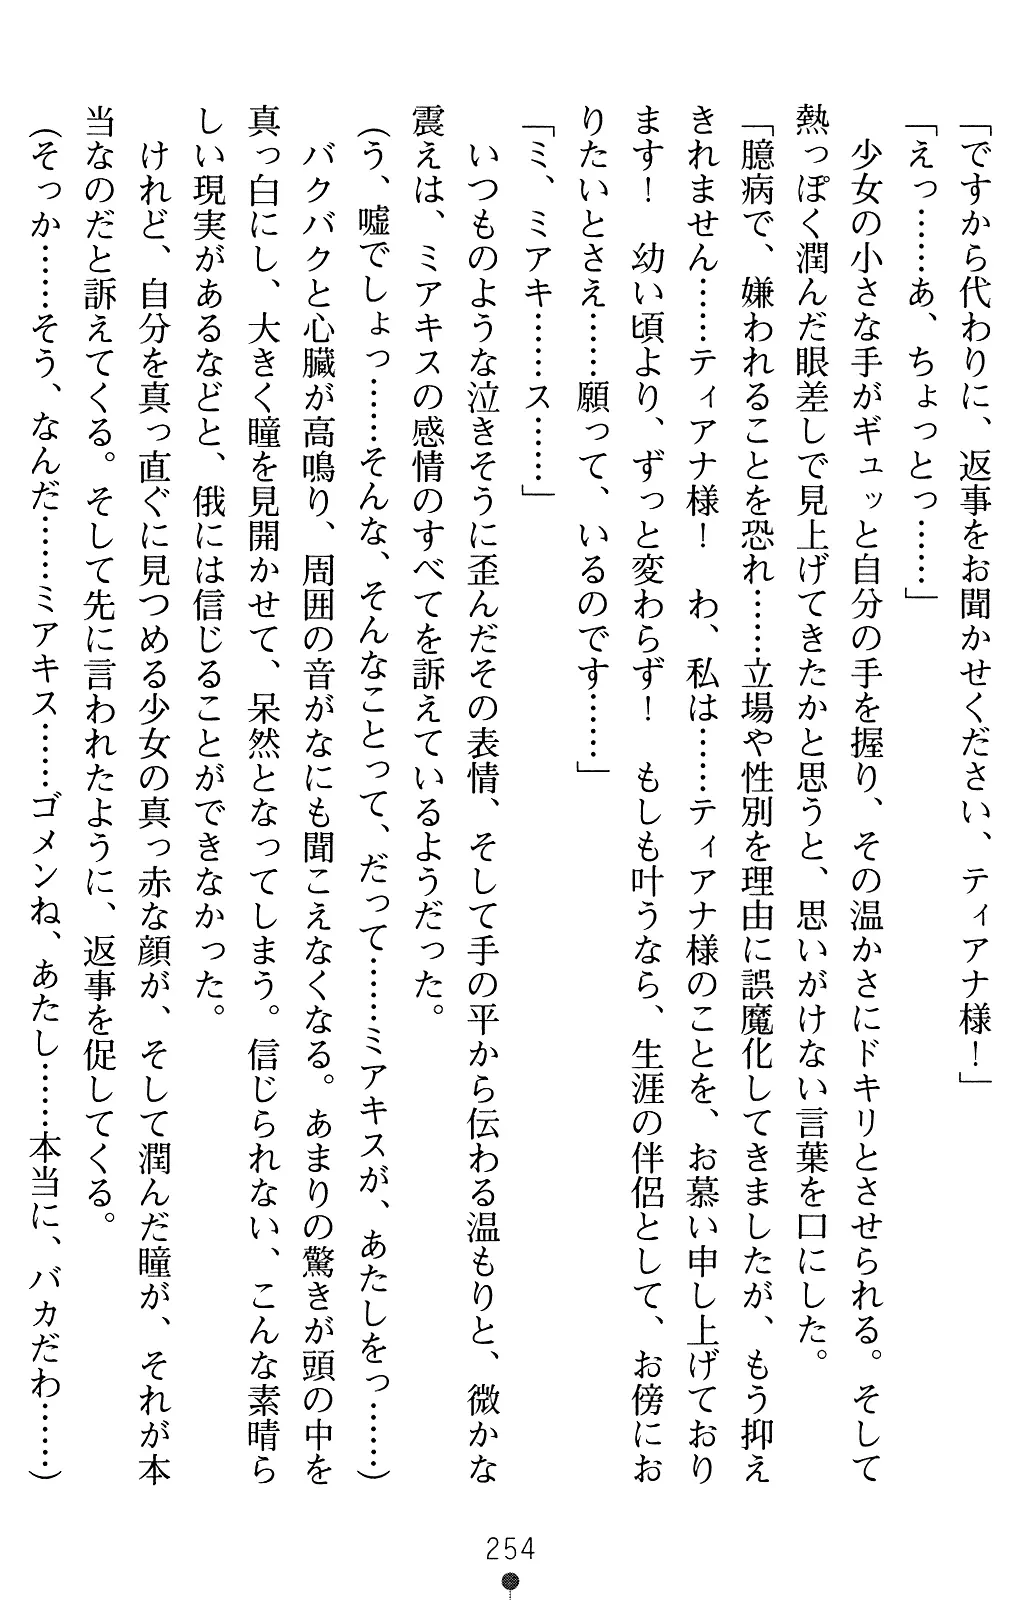 「ですから代わりに、返事をお聞かせください、ティアナ様！」
「えっ……あ、ちょっとっ……」
　少女の小さな手がギュッと自分の手を握り、その温かさにドキリとさせられる。そして
熱っぽく潤んだ眼差しで見上げてきたかと思うと、思いがけない言葉を口にした。
「臆病で、嫌われることを恐れ……立場や性別を理由に誤魔化してきましたが、もう抑え
きれません……ティアナ様！　わ、私は……ティアナ様のことを、お慕い申し上げており
ます！　幼い頃より、ずっと変わらず！　もしも叶うなら、生涯の伴侶として、お傍にお
りたいとさえ……願って、いるのです……」
「ミ、ミアキ……ス……」
　いつものような泣きそうに歪んだその表情、そして手の平から伝わる温もりと、微かな
震えは、ミアキスの感情のすべてを訴えているようだった。
（う、嘘でしょっ……そんな、そんなことって、だって……ミアキスが、あたしをっ……）
　バクバクと心臓が高鳴り、周囲の音がなにも聞こえなくなる。あまりの驚きが頭の中を
真っ白にし、大きく瞳を見開かせて、呆然となってしまう。信じられない、こんな素晴ら
しい現実があるなどと、俄には信じることができなかった。
　けれど、自分を真っ直ぐに見つめる少女の真っ赤な顔が、そして潤んだ瞳が、それが本
当なのだと訴えてくる。そして先に言われたように、返事を促してくる。
（そっか……そう、なんだ……ミアキス……ゴメンね、あたし……本当に、バカだわ……）
254